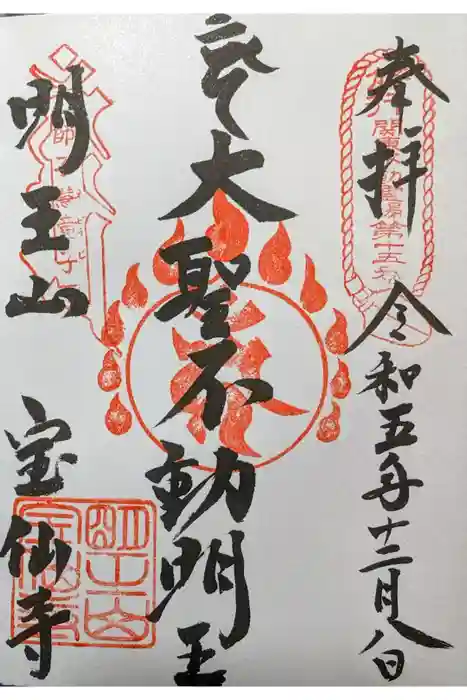 奉拝
令和五年十二月八日
大聖不動明王
明王山
宝仙寺
関東
第十五番